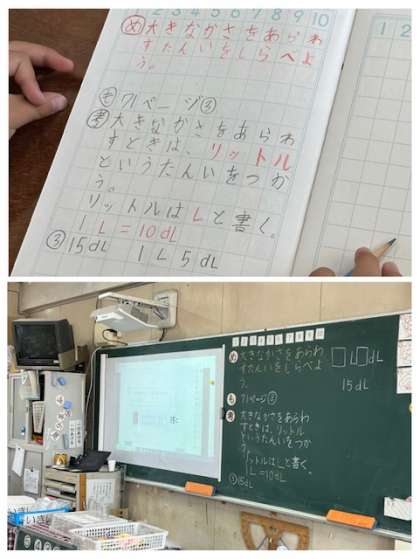 2 3 4 5 6 7 8 9 10
め 大きなかさをあらわ
すたんいをしらべよ
う。
も 71ページ③
考 大きなかさをあらわ
すときは、リットル
というたんいをつか
う。
リットルはLと書く。
1L=10dL
③15dL 1L5dL
1 2
1 2 3 4 5 6 7 8 9 10
め 大きなかさをあらわ
すたんいをしらべよ
う。
□L□dL
15dL
も 71ページ③
考 大きなかさをあらわ
すときは、リットル
というたんいをつか
う。
リットルはLと書く。
1L=10dL
③15dL